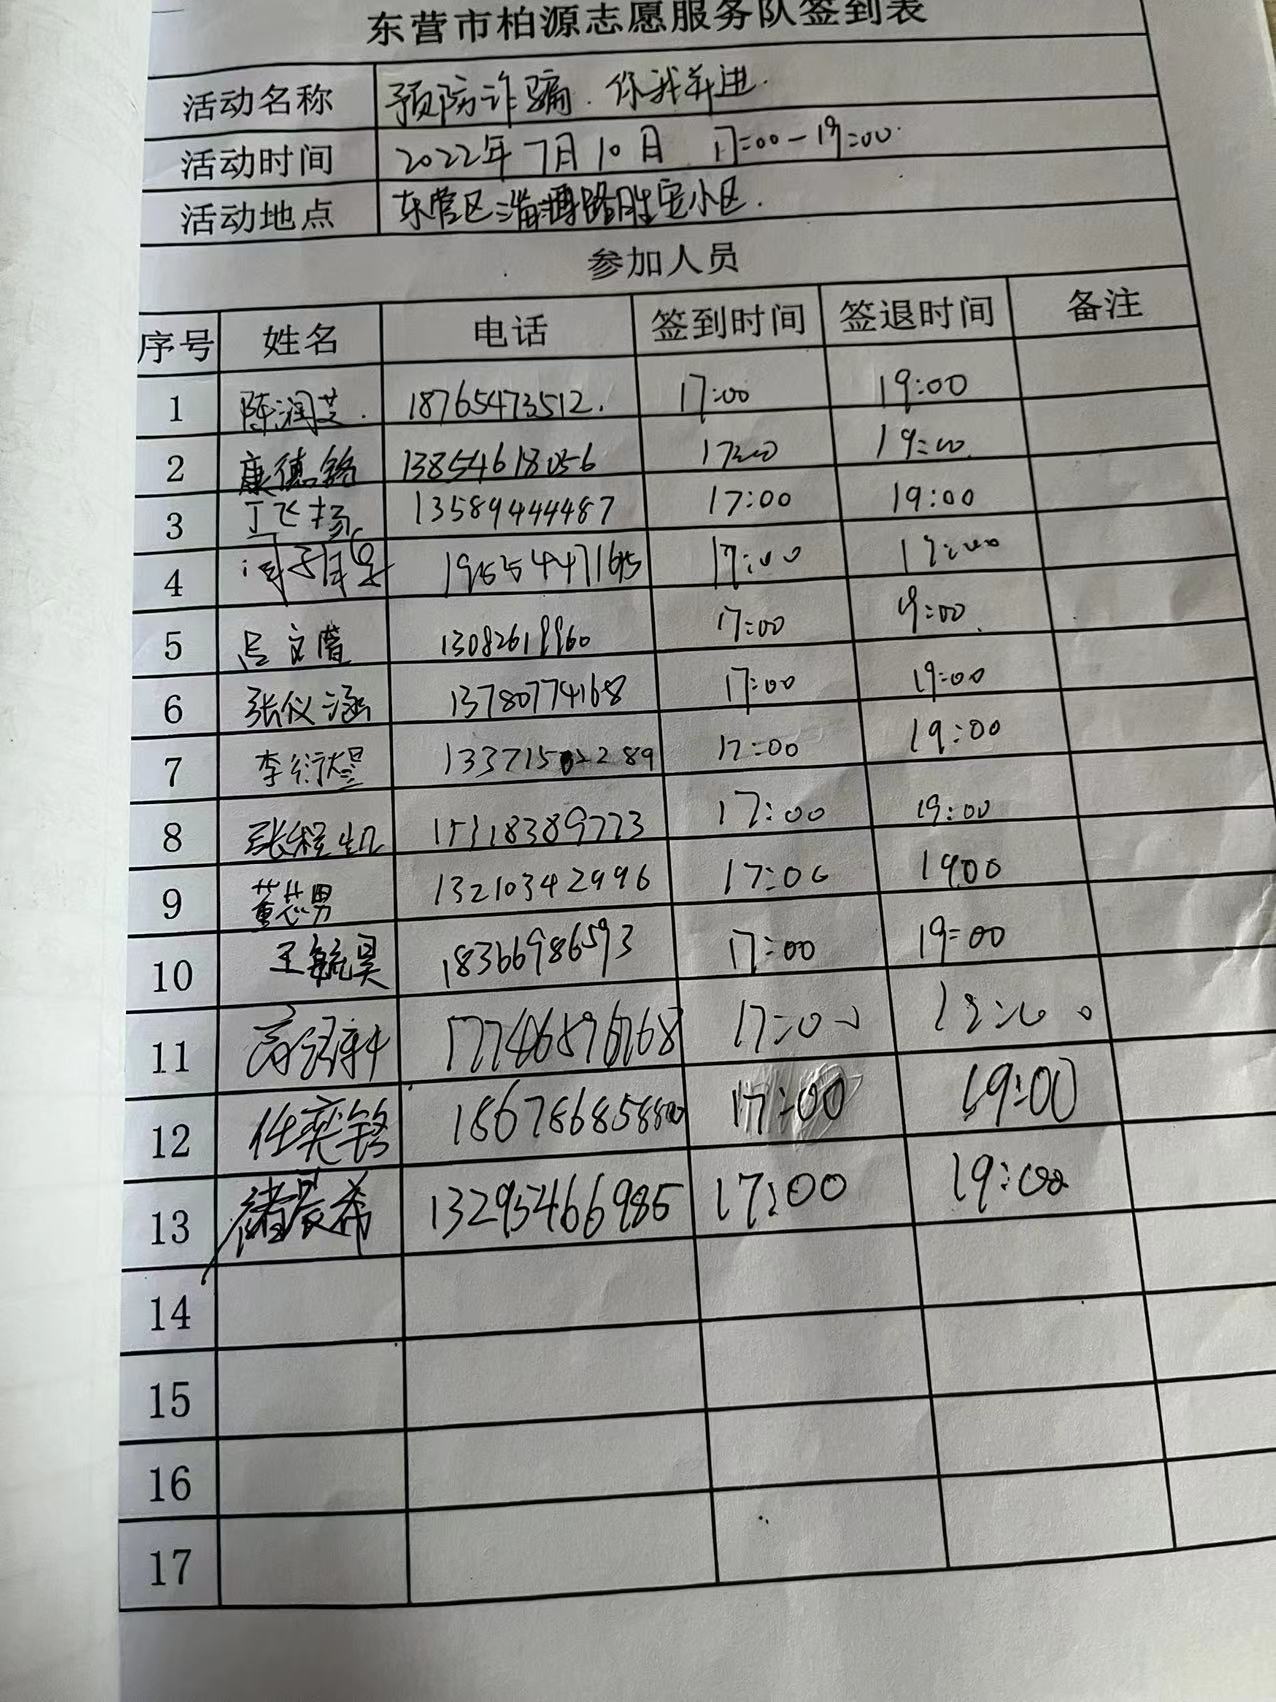 东营市柏源志愿服务队签到表
活动名称 预防诈骗.你我并进.
活动时间 2022年7月10日 17:00-19:00.
活动地点 东营区淄博路胜宏小区.
参加人员
序号 姓名 电话 签到时间 签退时间 备注
1 陈润芝. 18765473512. 17:00 19:00
2 康德铭 13854618056 17:00 19:00.
3 丁飞扬 13589444487 17:00 19:00
4 17:00
5 吕文萱 13082619960 17:00 19:00.
6 张仪涵 13780774168 17:00 19:00
7 李衍煜 17:00 19:00
8 张程凯 15318389773 17:00 19:00
9 董芯男 13210342996 17:00 1900
10 王毓昊 18366986593 17:00 19:00
11 17:00
12 任奕铭 17:00 19:00
13 褚晨希 13295466985 17:00 19:00
14
15
16
17